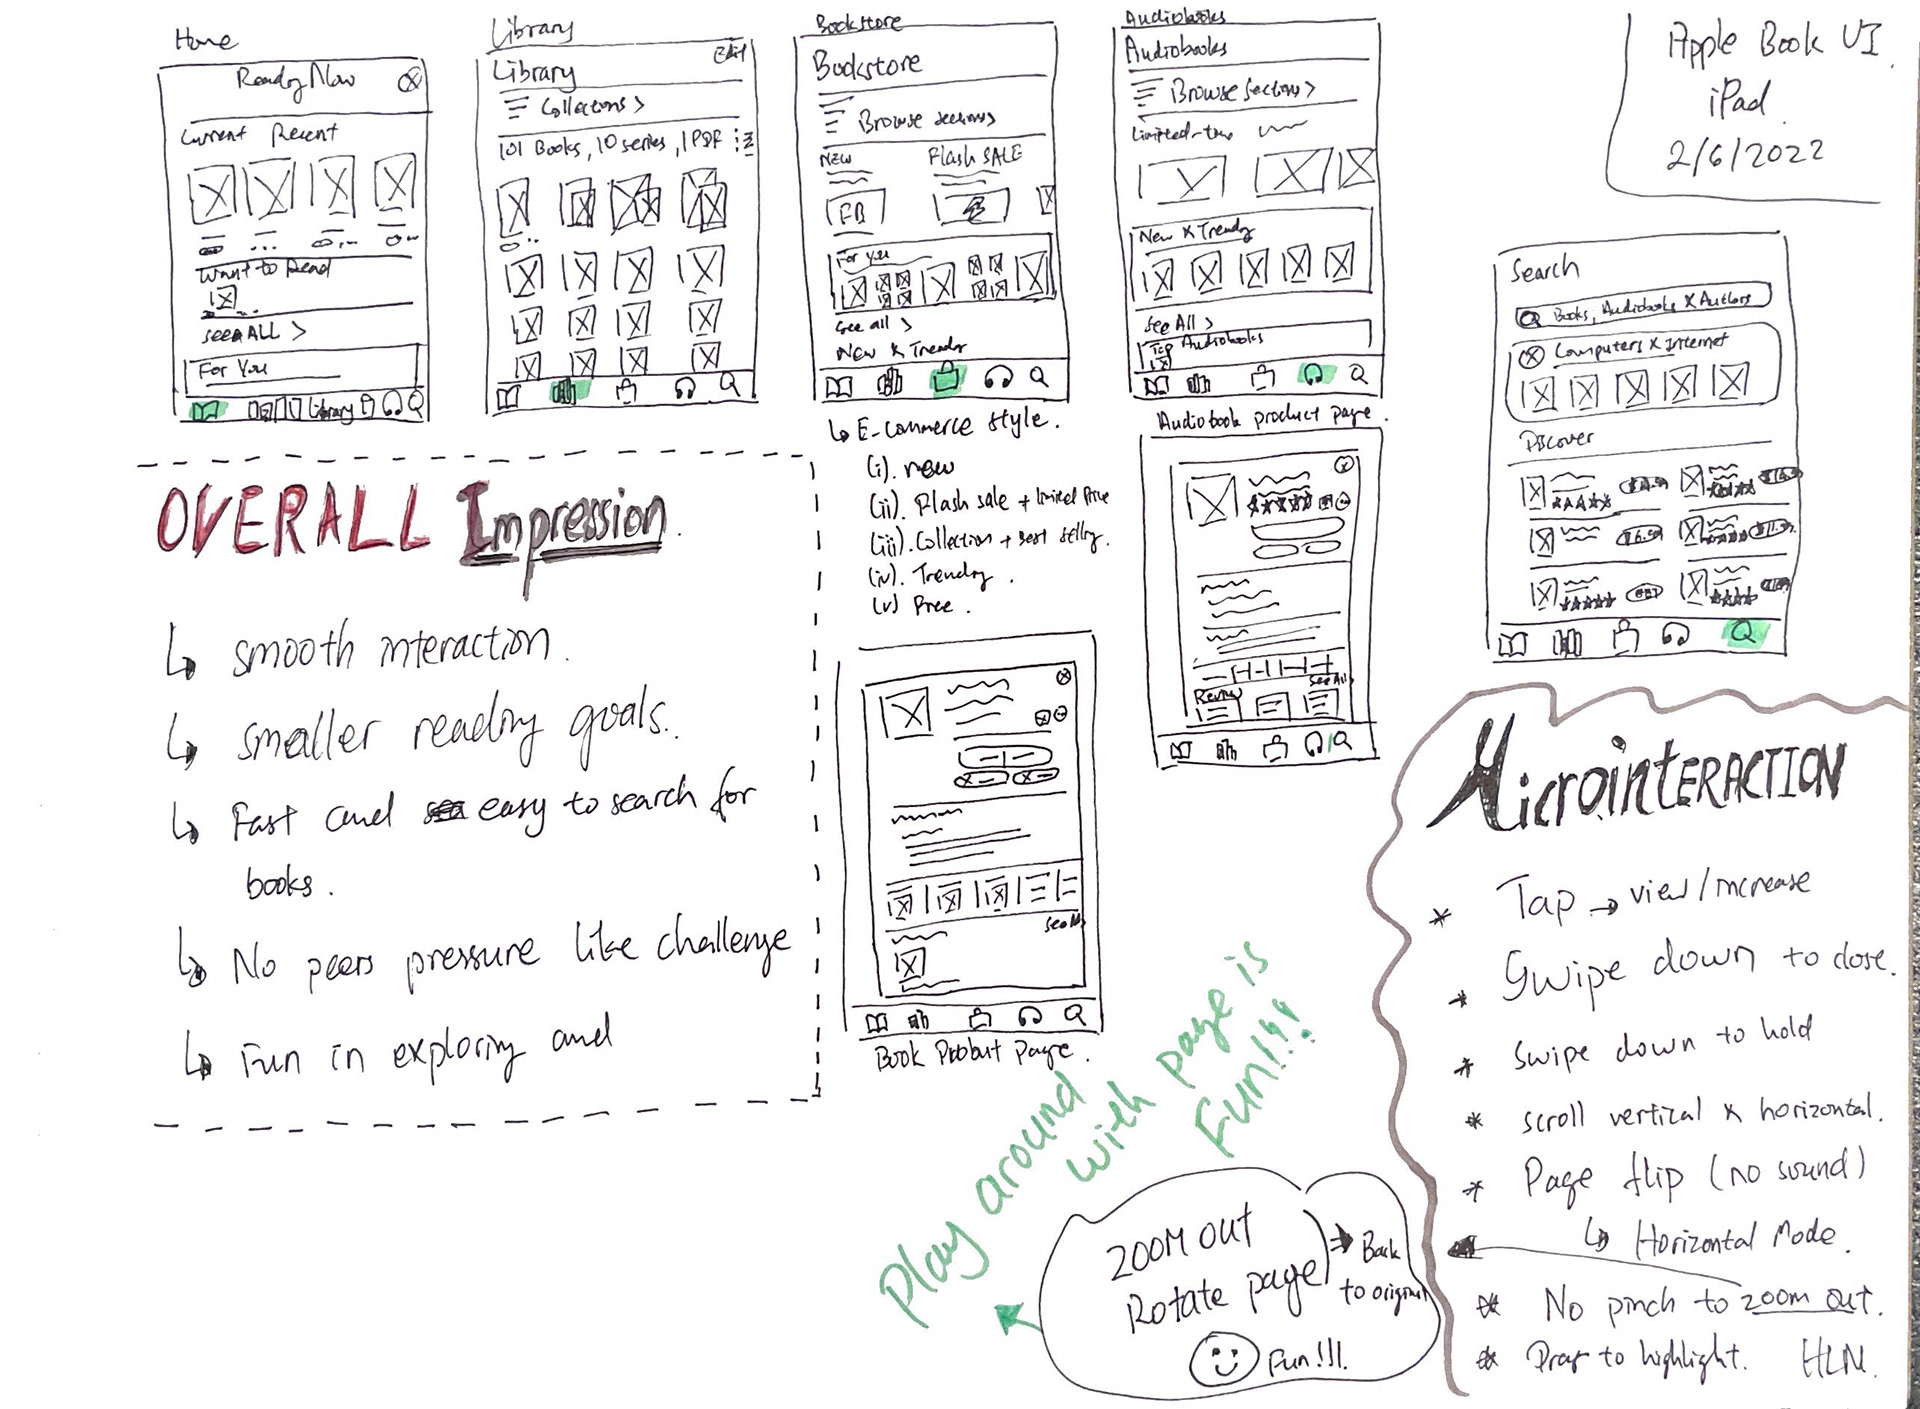 Home
Reading Now
Current Recent
Want to Read
See ALL >
For You
Library
Library
Library
Edit
Collections >
101 Books, 10 series, 1 PDF
Bookstore
Bookstore
Browse sections
NEW
Flash SALE
For You
See all >
New & Trendy
↳ E-commerce style.
(i). new
(ii). Flash sale + limited Price
(iii). Collection + Best selling.
(iv). Trendy.
(v) Free.
Audiobooks
Audiobooks
Browse sections >
Limited-time
New & Trendy
See All >
Top Audiobooks
Audiobook product page.
Review
See All
Apple Book UI.
iPad
2/6/2022
Search
Books, Audiobooks & Authors
Computers & Internet
Discover
OVERALL Impression.
↳ smooth interaction.
↳ smaller reading goals.
↳ Fast and easy to search for
books.
↳ No peers pressure like challenge
↳ Fun in exploring and
See All
Book Probut Page.
Play around
with page is
Fun!!!
ZOOM OUT
Rotate page
→ Back
to original
Fun!!!
MicrointERACTION
* Tap → view/increase
* Swipe down to close.
* Swipe down to hold
* scroll vertical & horizontal.
* Page flip (no sound)
↳ Horizontal Mode.
* No pinch to zoom out.
* Drag to highlight. HLN.